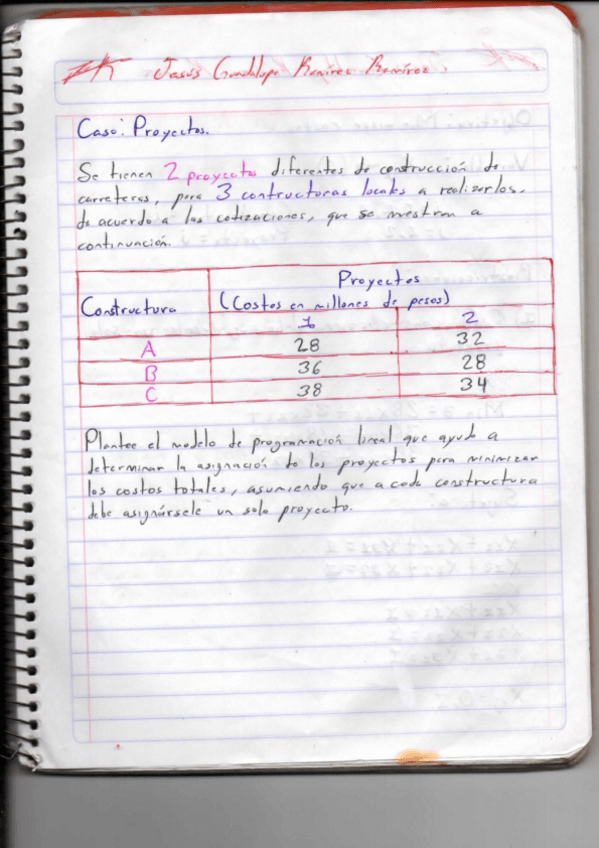 Jesús Guadalupe Ramírez Ramírez.
Caso: Proyectos.
Se tienen 2 proyectos diferentes de construcción de
carreteras, para 3 contructoras locales a realizarlos,
de acuerdo a las cotizaciones, que se muestran a
continuación.
Proyectos
Constructora (Costos en millones de pesos)
1 2
A 28 32
B 36 28
C 38 34
Plantee el modelo de programación lineal que ayude a
determinar la asignación de los proyectos para minimizar
los costos totales, asumiendo que a cada constructura
debe asignársele un solo proyecto.